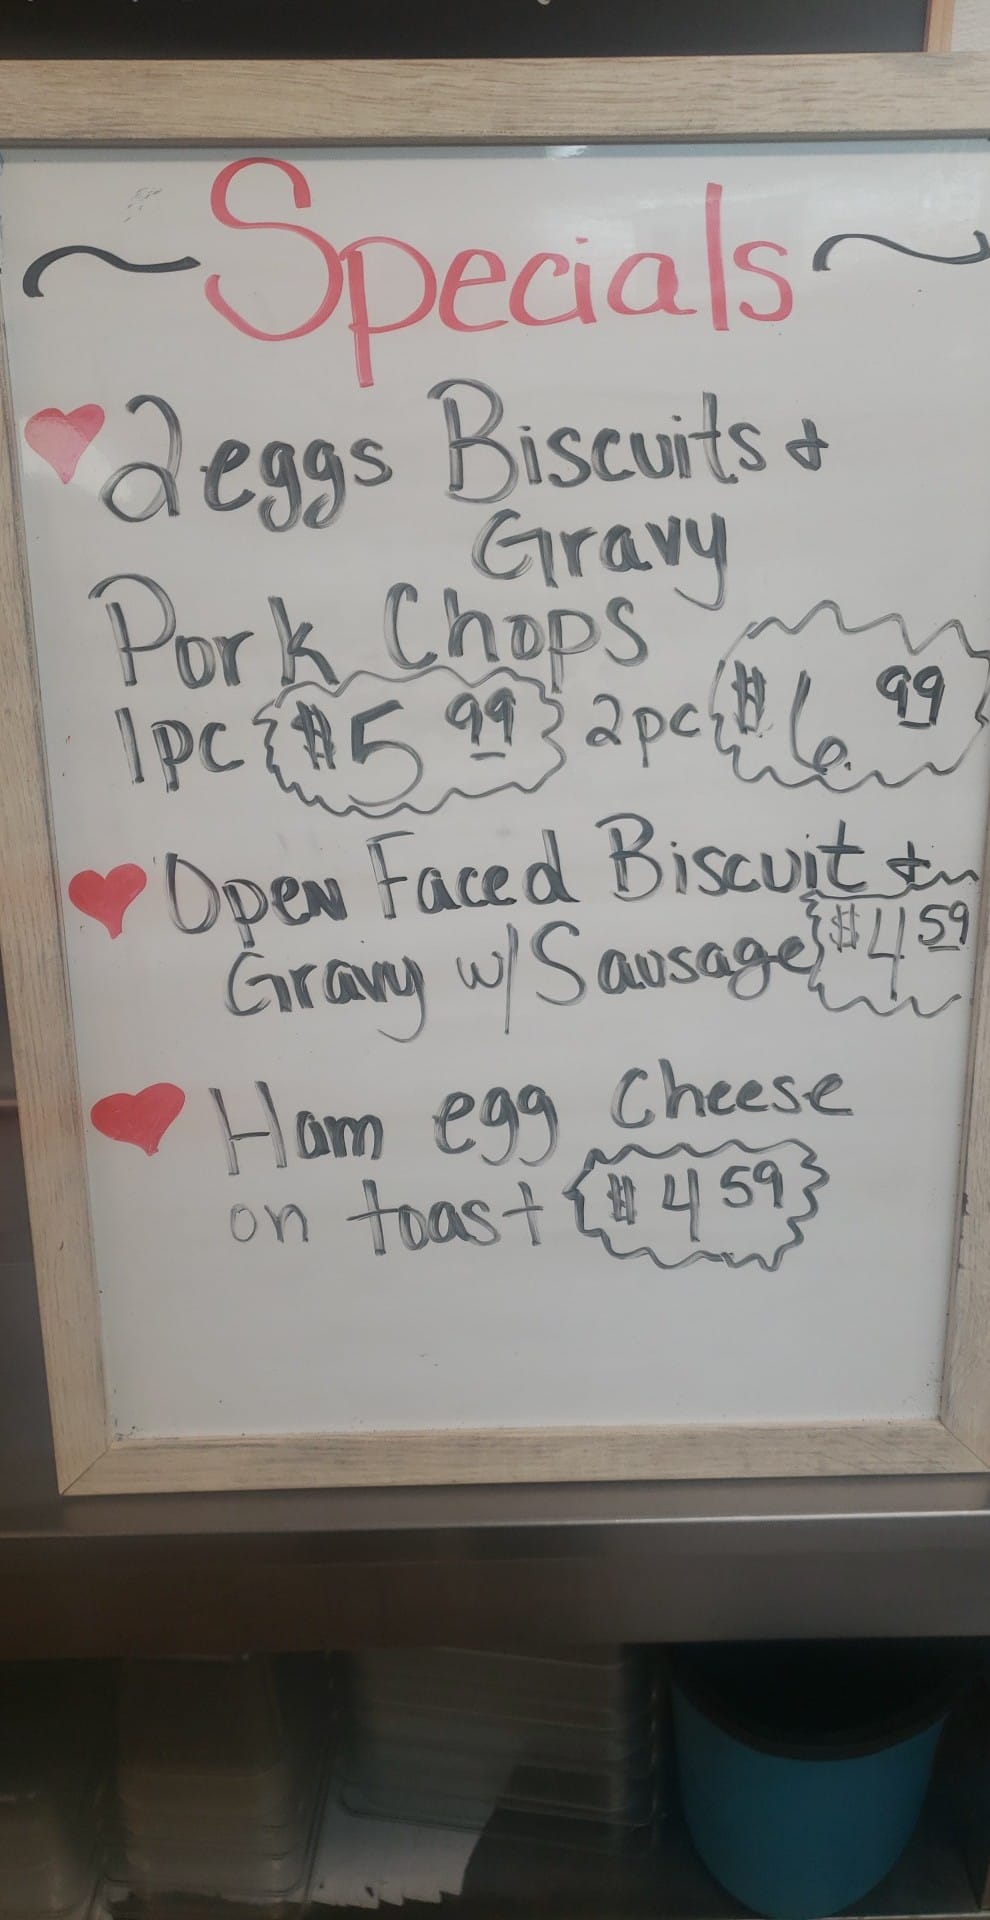 ~ Specials ~
2 eggs Biscuits &
Gravy
Pork Chops
1pc $5 99 2pc $6. 99
Open Faced Biscuit &
Gravy w/ Sausage $4 59
Ham egg Cheese
on toast $4 59